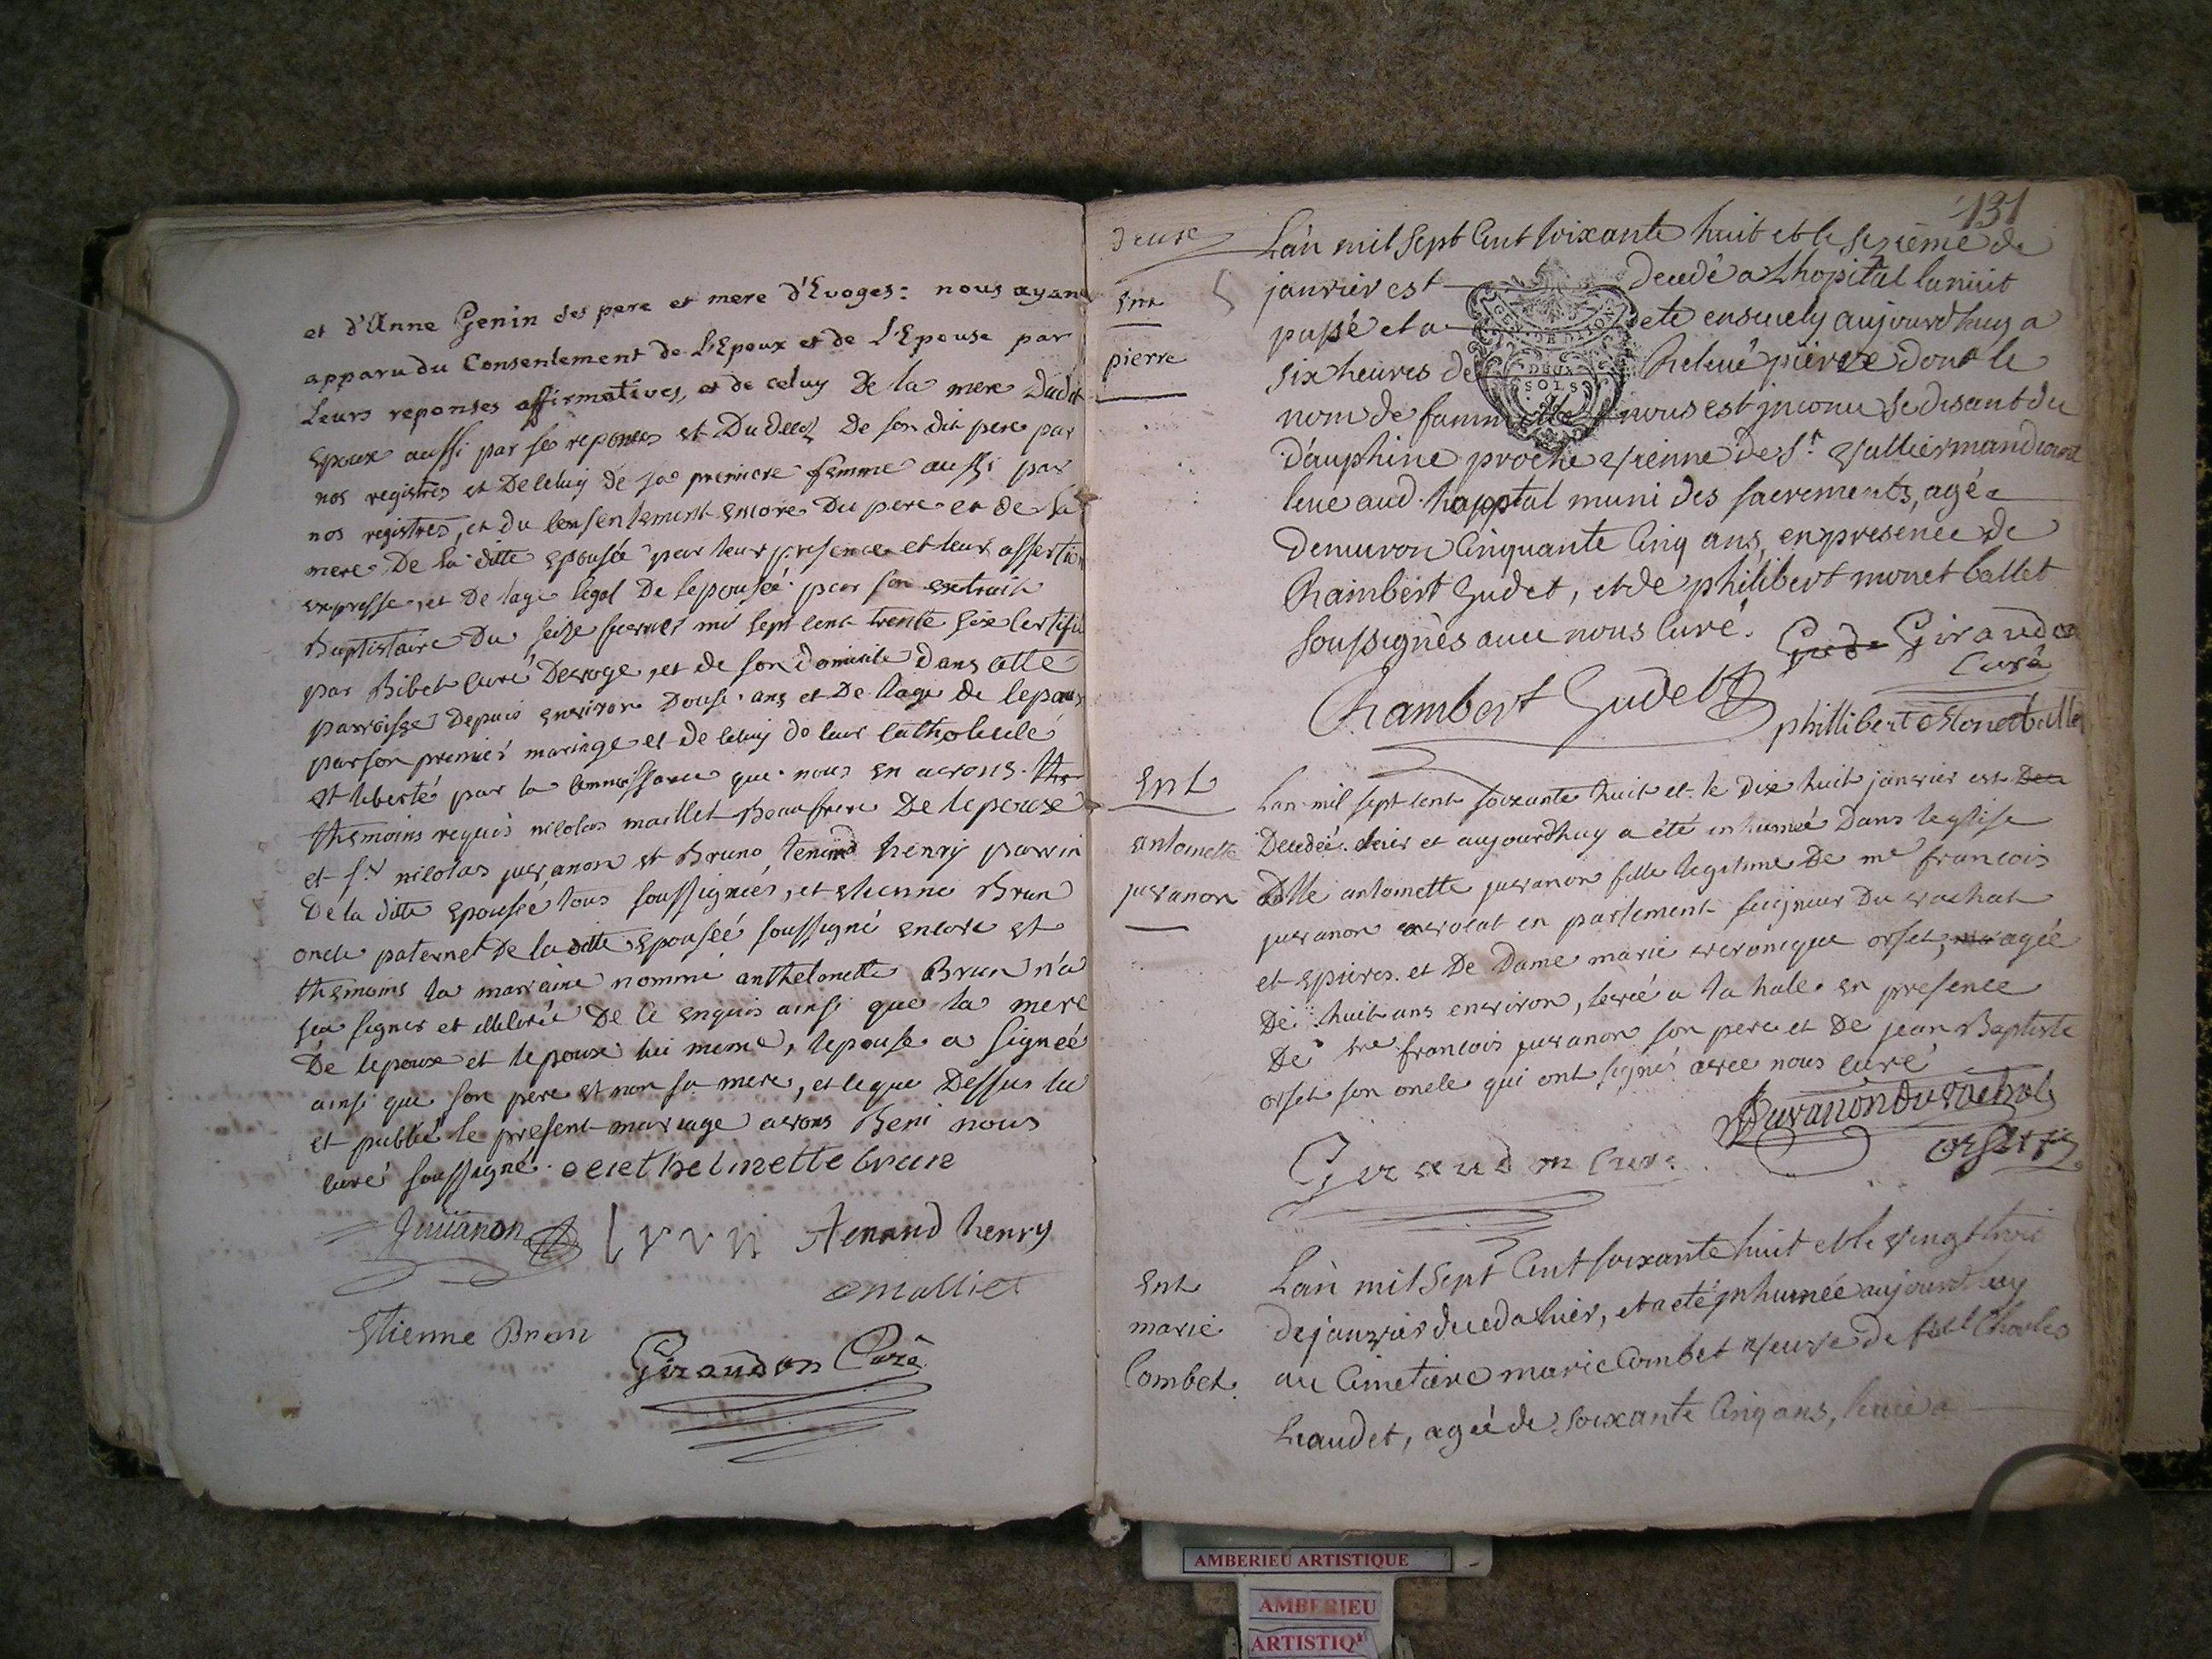 et d'Anne Genin ses pere et mere d'Evoges: nous ayant
apparu du Consentement de L'Epoux et de L'Epouse par
Leurs reponses affirmatives, et de celuy De la mere Dudit
Epoux aussi par ses reponses et Du deces De son dit pere par
nos registres et De celuy de sa premiere femme aussi par
nos registres, et du consentement encore Du pere et de la
mere De la ditte epousée par leur presence et leur assertion
expresse, et De lage legal De lepousée par son extrait
Baptistaire Du seize fevrier mil sept cent trente six certifié
par Bibet curé Devoge, et de son domicile dans cette
parroisse depuis environ Douse ans et De lage de lepoux
par son premier mariage et de celuy de leur catholicité
et liberté par la connoissance que nous en avons.
themoins requis nicolas maillet Beaufrere De lepoux
et sr nicolas juvanon et Bruno tenand henry parrin
De la ditte epousée tous soussignés, et etienne Brun
oncle paternel De la ditte epousée soussigné encore et
themoins la marraine nommé anthelmette Brun n'a
sçu signer et illiterée De ce enquis ainsi que la mere
De lepoux et lepoux lui meme, lepouse a signée
ainsi que son pere et non sa mere, et ceque Dessus lu
et publié le present mariage avons Beni nous
curé soussigné. enethelmette brun
Juvanon brun tenand henry
maillet
Etienne Brun
Giraudon Curé
131
Deux
Ent
pierre
L'an mil sept Cent soixante huit et le sezieme de
janvier est decedé a Lhopital la nuit
passé et a eté enseucly aujourdhuy a
six heures de Releué pierre dont le
nom de famille nous est jnconu se disant du
dauphine proche vienne de St vallier mandiant
leué aud. hoppital muni des sacrements, agé
denuiron Cinquante Cinq ans, en presence de
Rambert Gudet, et de philibert monet ballet
soussignés auec nous Curé. Giraudon
Curé
GENER DE DIJON
DEUX
SOLS
Rambert Gudet
phillibert Monet balle
Ent
antoinette
juvanon
Lan mil sept cent soixante huit et le dix huit janvier est
Decedée hier et aujourdhuy a été inhumée Dans leglise
Dlle antoinette juvanon fille legitime De me francois
juvanon avocat en parlement seigneur Du vachat
et Epieres et De Dame marie veronique orset, agée
De huit ans environ, levée a la hale en presence
De francois juvanon son pere et De jean Baptiste
orset son oncle qui ont signés avec nous curé
Juvanon du vachat
Giraudon Curé
orset
Ent
marie
Combet
L'an mil sept Cent soixante huit et le vingt trois
de janvier decedа hier, et a eté jnhumée aujourdhuy
au Cimetiere marie Combet veuve de Charles
Liaudet, agée de soixante Cinq ans, leuée a
AMBERIEU ARTISTIQUE
AMBERIEU
ARTISTIQ